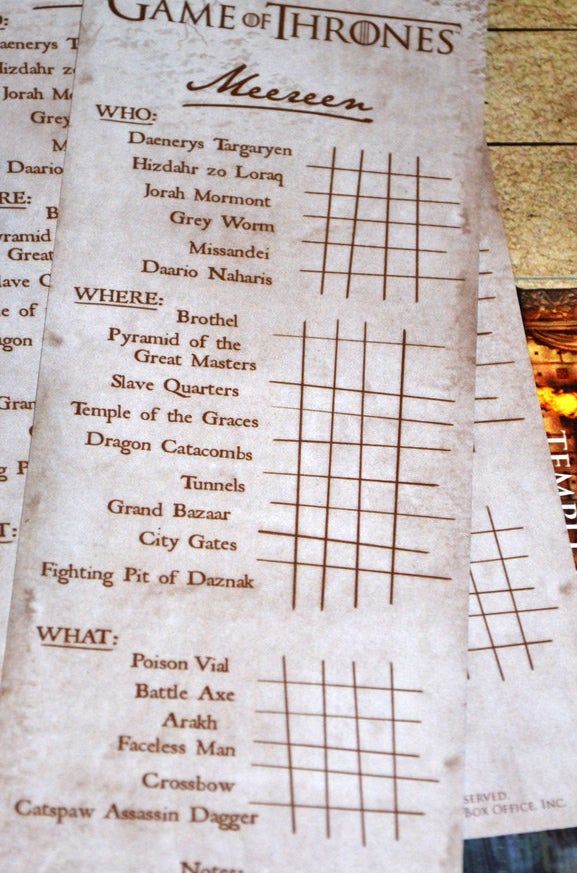 GAME OF THRONES
Meereen
WHO:
Daenerys Targaryen
Hizdahr zo Loraq
Jorah Mormont
Grey Worm
Missandei
Daario Naharis
WHERE:
Brothel
Pyramid of the
Great Masters
Slave Quarters
Temple of the Graces
Dragon Catacombs
Tunnels
Grand Bazaar
City Gates
Fighting Pit of Daznak
WHAT:
Poison Vial
Battle Axe
Arakh
Faceless Man
Crossbow
Catspaw Assassin Dagger
Notes:
aenerys T
Hizdahr z
Jorah M
Grey
M
Daario
RE:
B
yramid
Great
lave C
e of
agon
Gran
g P
T:
TEMPL
SERVED.
BOX OFFICE, INC.